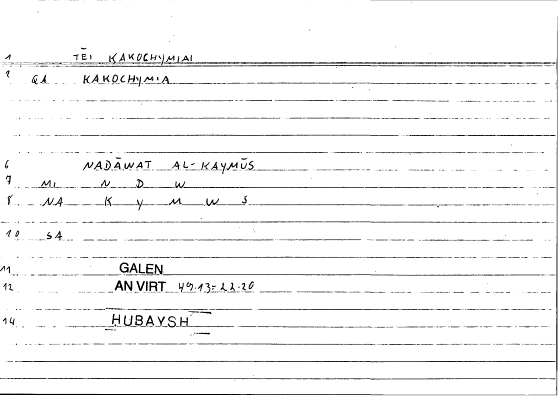 1 TĒI KAKOCHYMIAI
2 GA KAKOCHYMIA
6 NADĀWAT AL-KAYMŪS
7 MI N D W
8 NA K Y M W S
10 SA
11 GALEN
12 AN VIRT 49.13=22.20
14 HUBAYSH